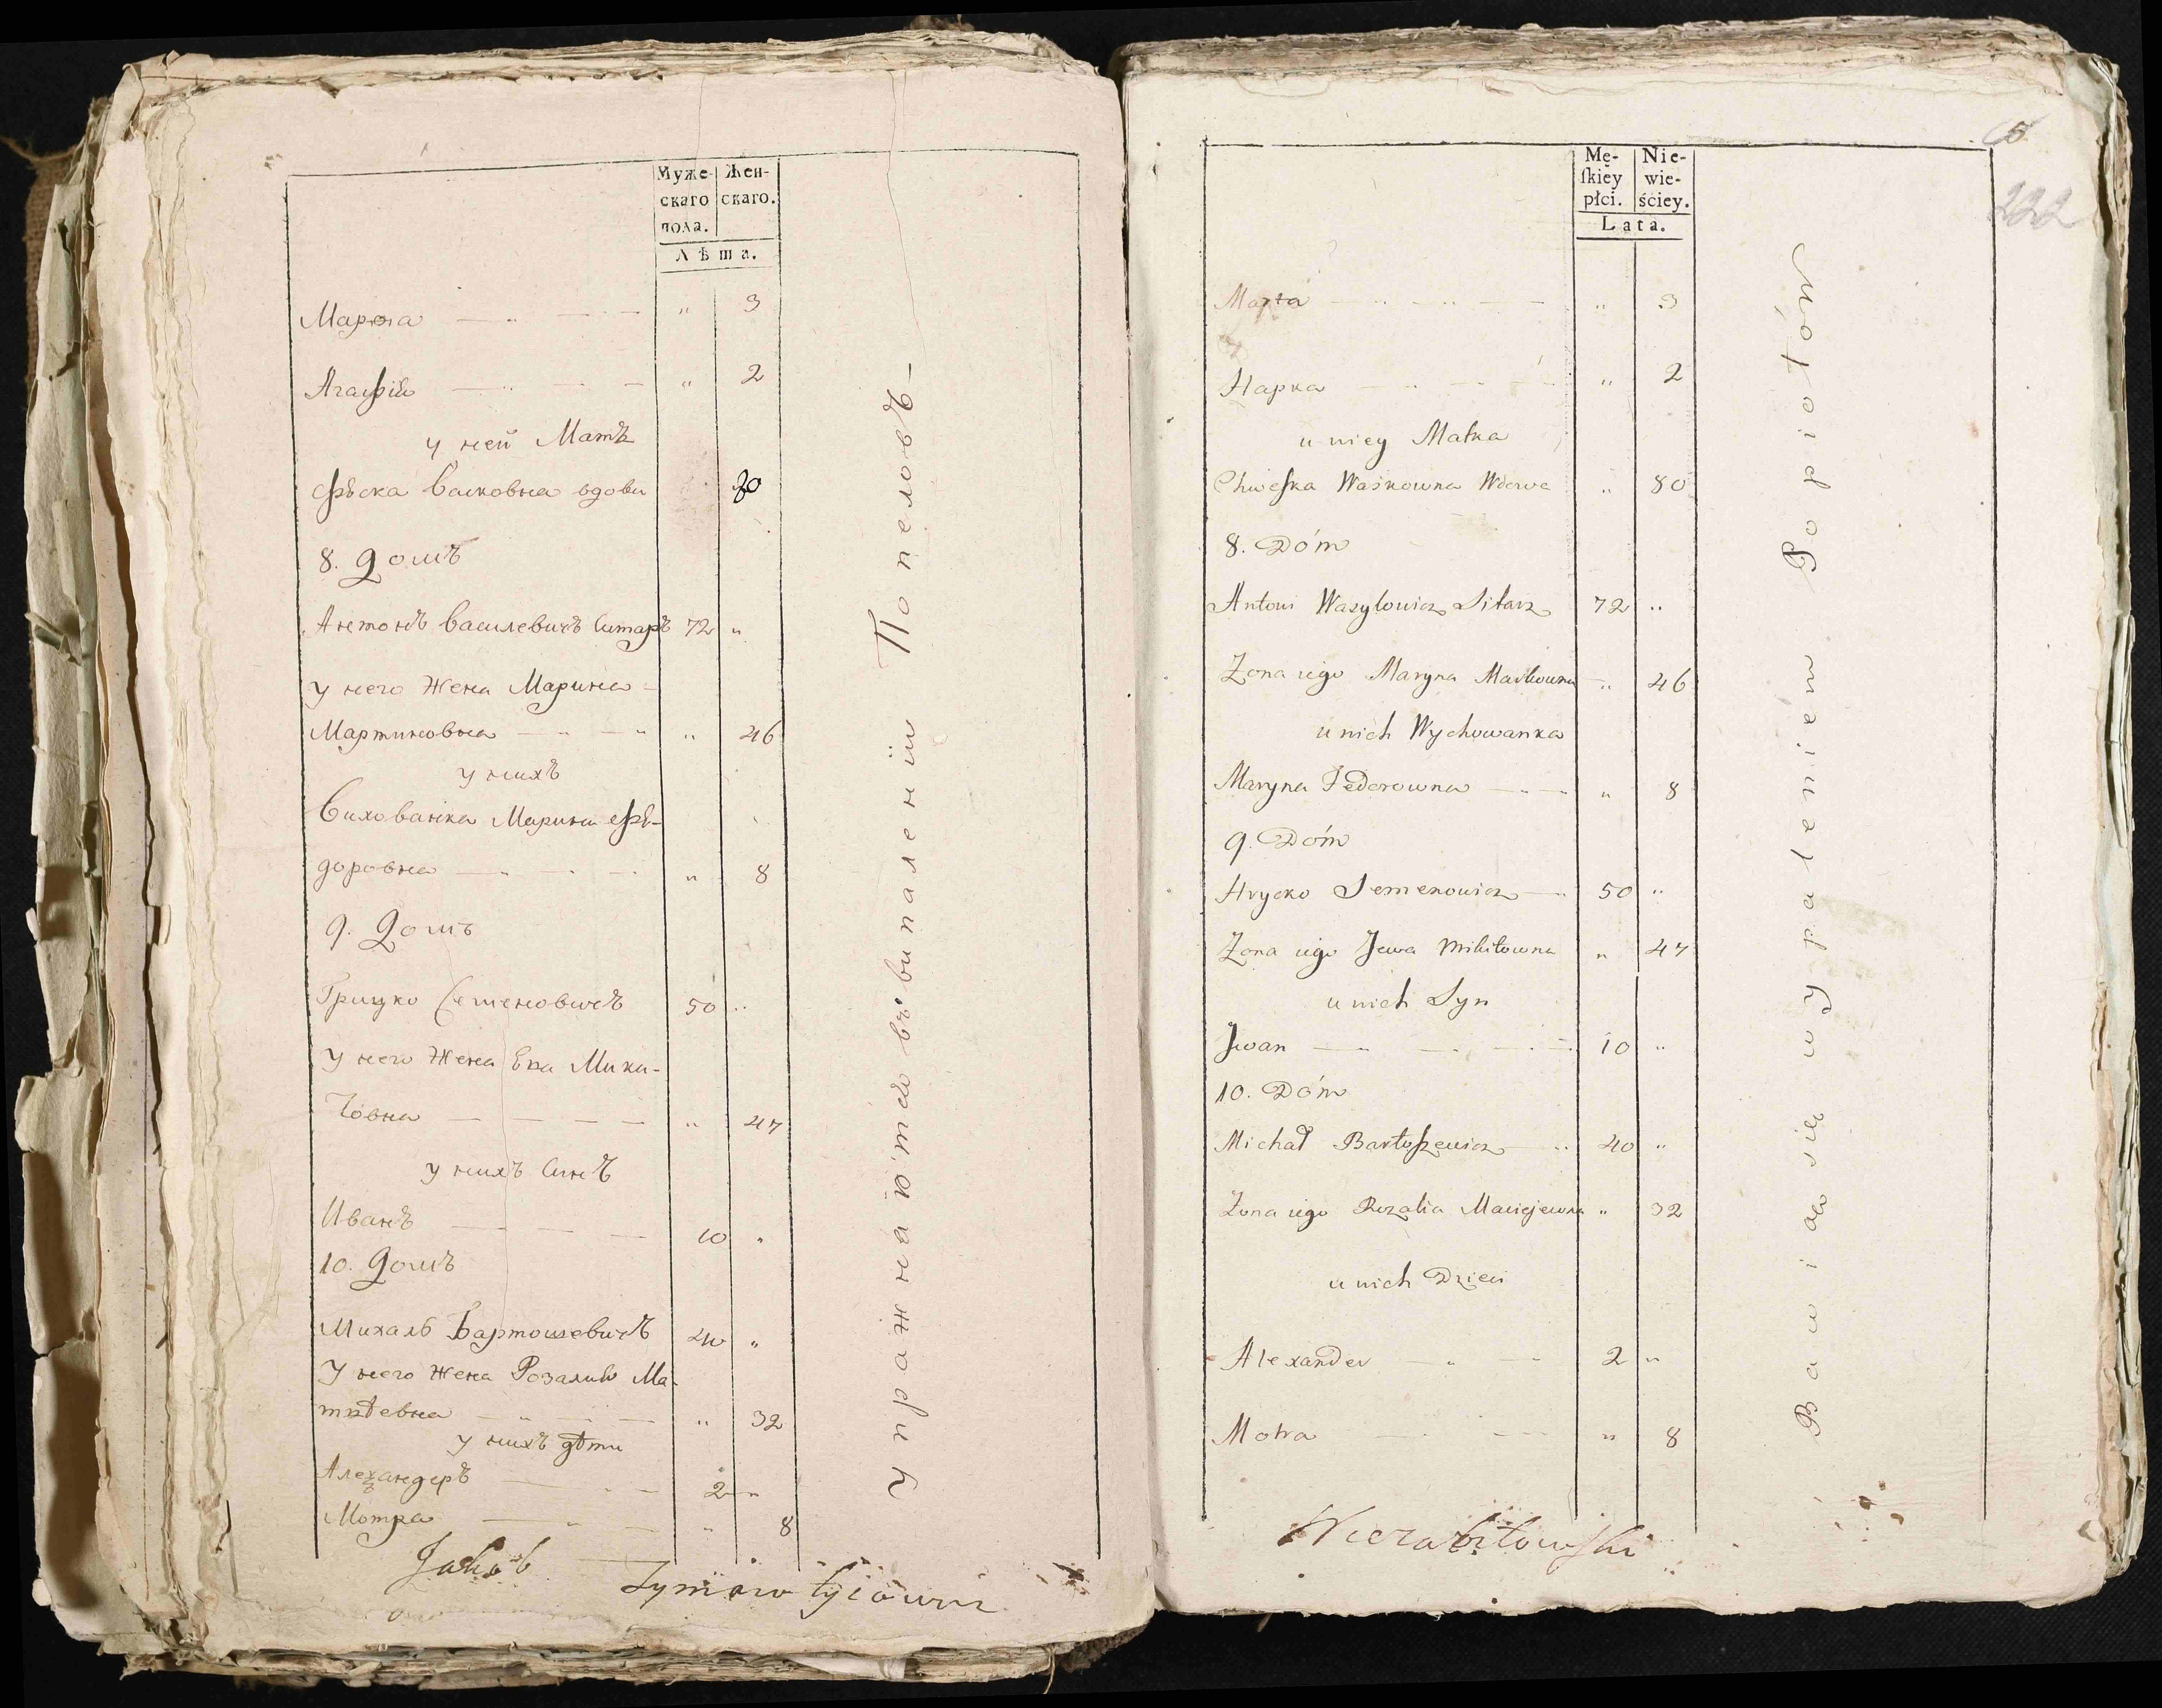 Муже-
скаго
пола.
Жен-
скаго.
Лѣта.
Марѳа — „ — „ 3
Агафiя — „ — „ 2
у ней Матъ
Ѳѣска Васковна вдова 80
8. Домъ
Антонъ Василевичъ Ситаръ 72 „
у него Жена Марина
Мартиновна — „ — „ „ 46
у нихъ
Вихованка Марина Ѳѣ-
доровна — „ — „ 8
9. Домъ
Грицко Семеновичъ 50 „
у него Жена Ева Мики-
товна — — — — „ 47
у нихъ Синъ
Иванъ — — — 10 „
10. Домъ
Михалъ Бартошевичъ 40 „
У него Жена Розалия Ма-
тѣевна — „ — — „ 32
у нихъ дѣти
Алеxандеръ — — 2 „
Мотра — „ — „ 8
Упражнаютъ въ випаленiи Попеловъ —
Jakób Szymow
5
222
Mę-
ſkiey
płci.
Nie-
wie-
ściey.
Lata.
Marta — „ — „ — „ 3
Hapka — „ — „ 2
u niey Matka
Chweſka Waskowna Wdowa „ 80
8. Dóm
Antoni Wasylowicz Sitarz 72 „
Zona iego Maryna Martinowna „ 46
u nich Wychowanka
Maryna Fedorowna — „ 8
9. Dóm
Hrycko Semenowicz — 50 „
Zona iego Jewa Mikitowna „ 47
u nich Syn
Jwan — — — 10 „
10. Dóm
Michał Bartoſzewicz — 40 „
Zona iego Rozalia Maciejewna „ 32
u nich Dzieci
Alexander — „ — 2 „
Motra — — „ 8
Bawiąa się wypaleniem Popiołów